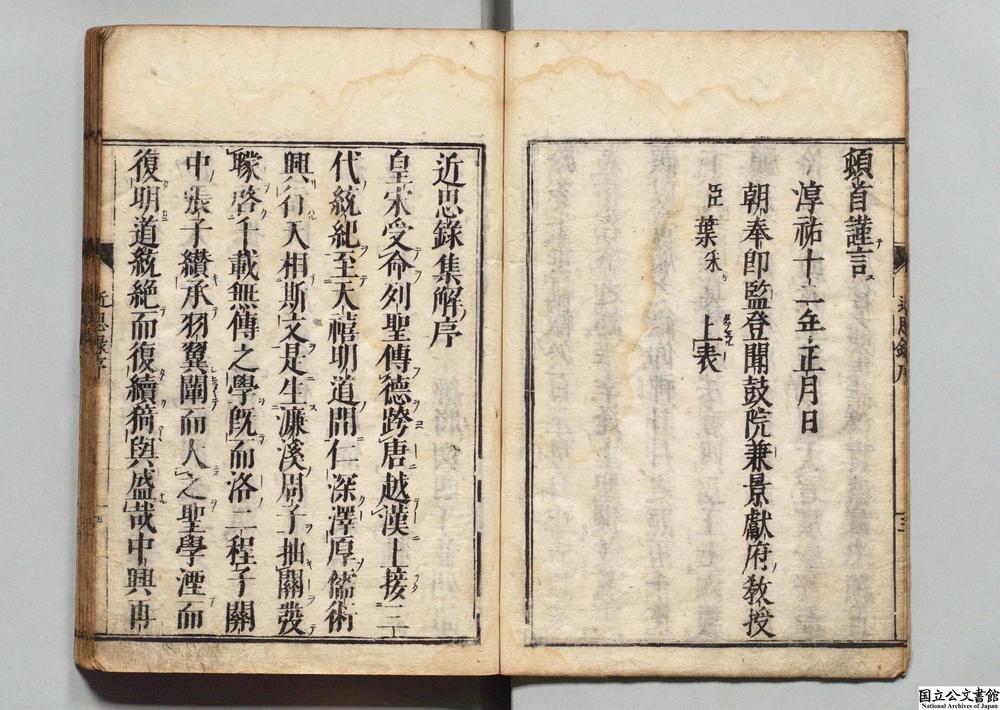 頓首謹言
淳祐十二年正月日
朝奉郎監登聞鼓院兼景獻府教授
臣葉采上表
近思錄序
三
近思錄集解序
皇宋受命列聖傳德跨唐越漢上接三
代統紀至天禧明道間仁深澤厚儒術
興行天相斯文是生濂溪周子抽關發
矇啓千載無傳之學既而洛二程子關
中張子纘承羽翼闡而大之聖學湮而
復明道統絶而復續猗與盛哉中興再
近思錄序
国立公文書館
National Archives of Japan